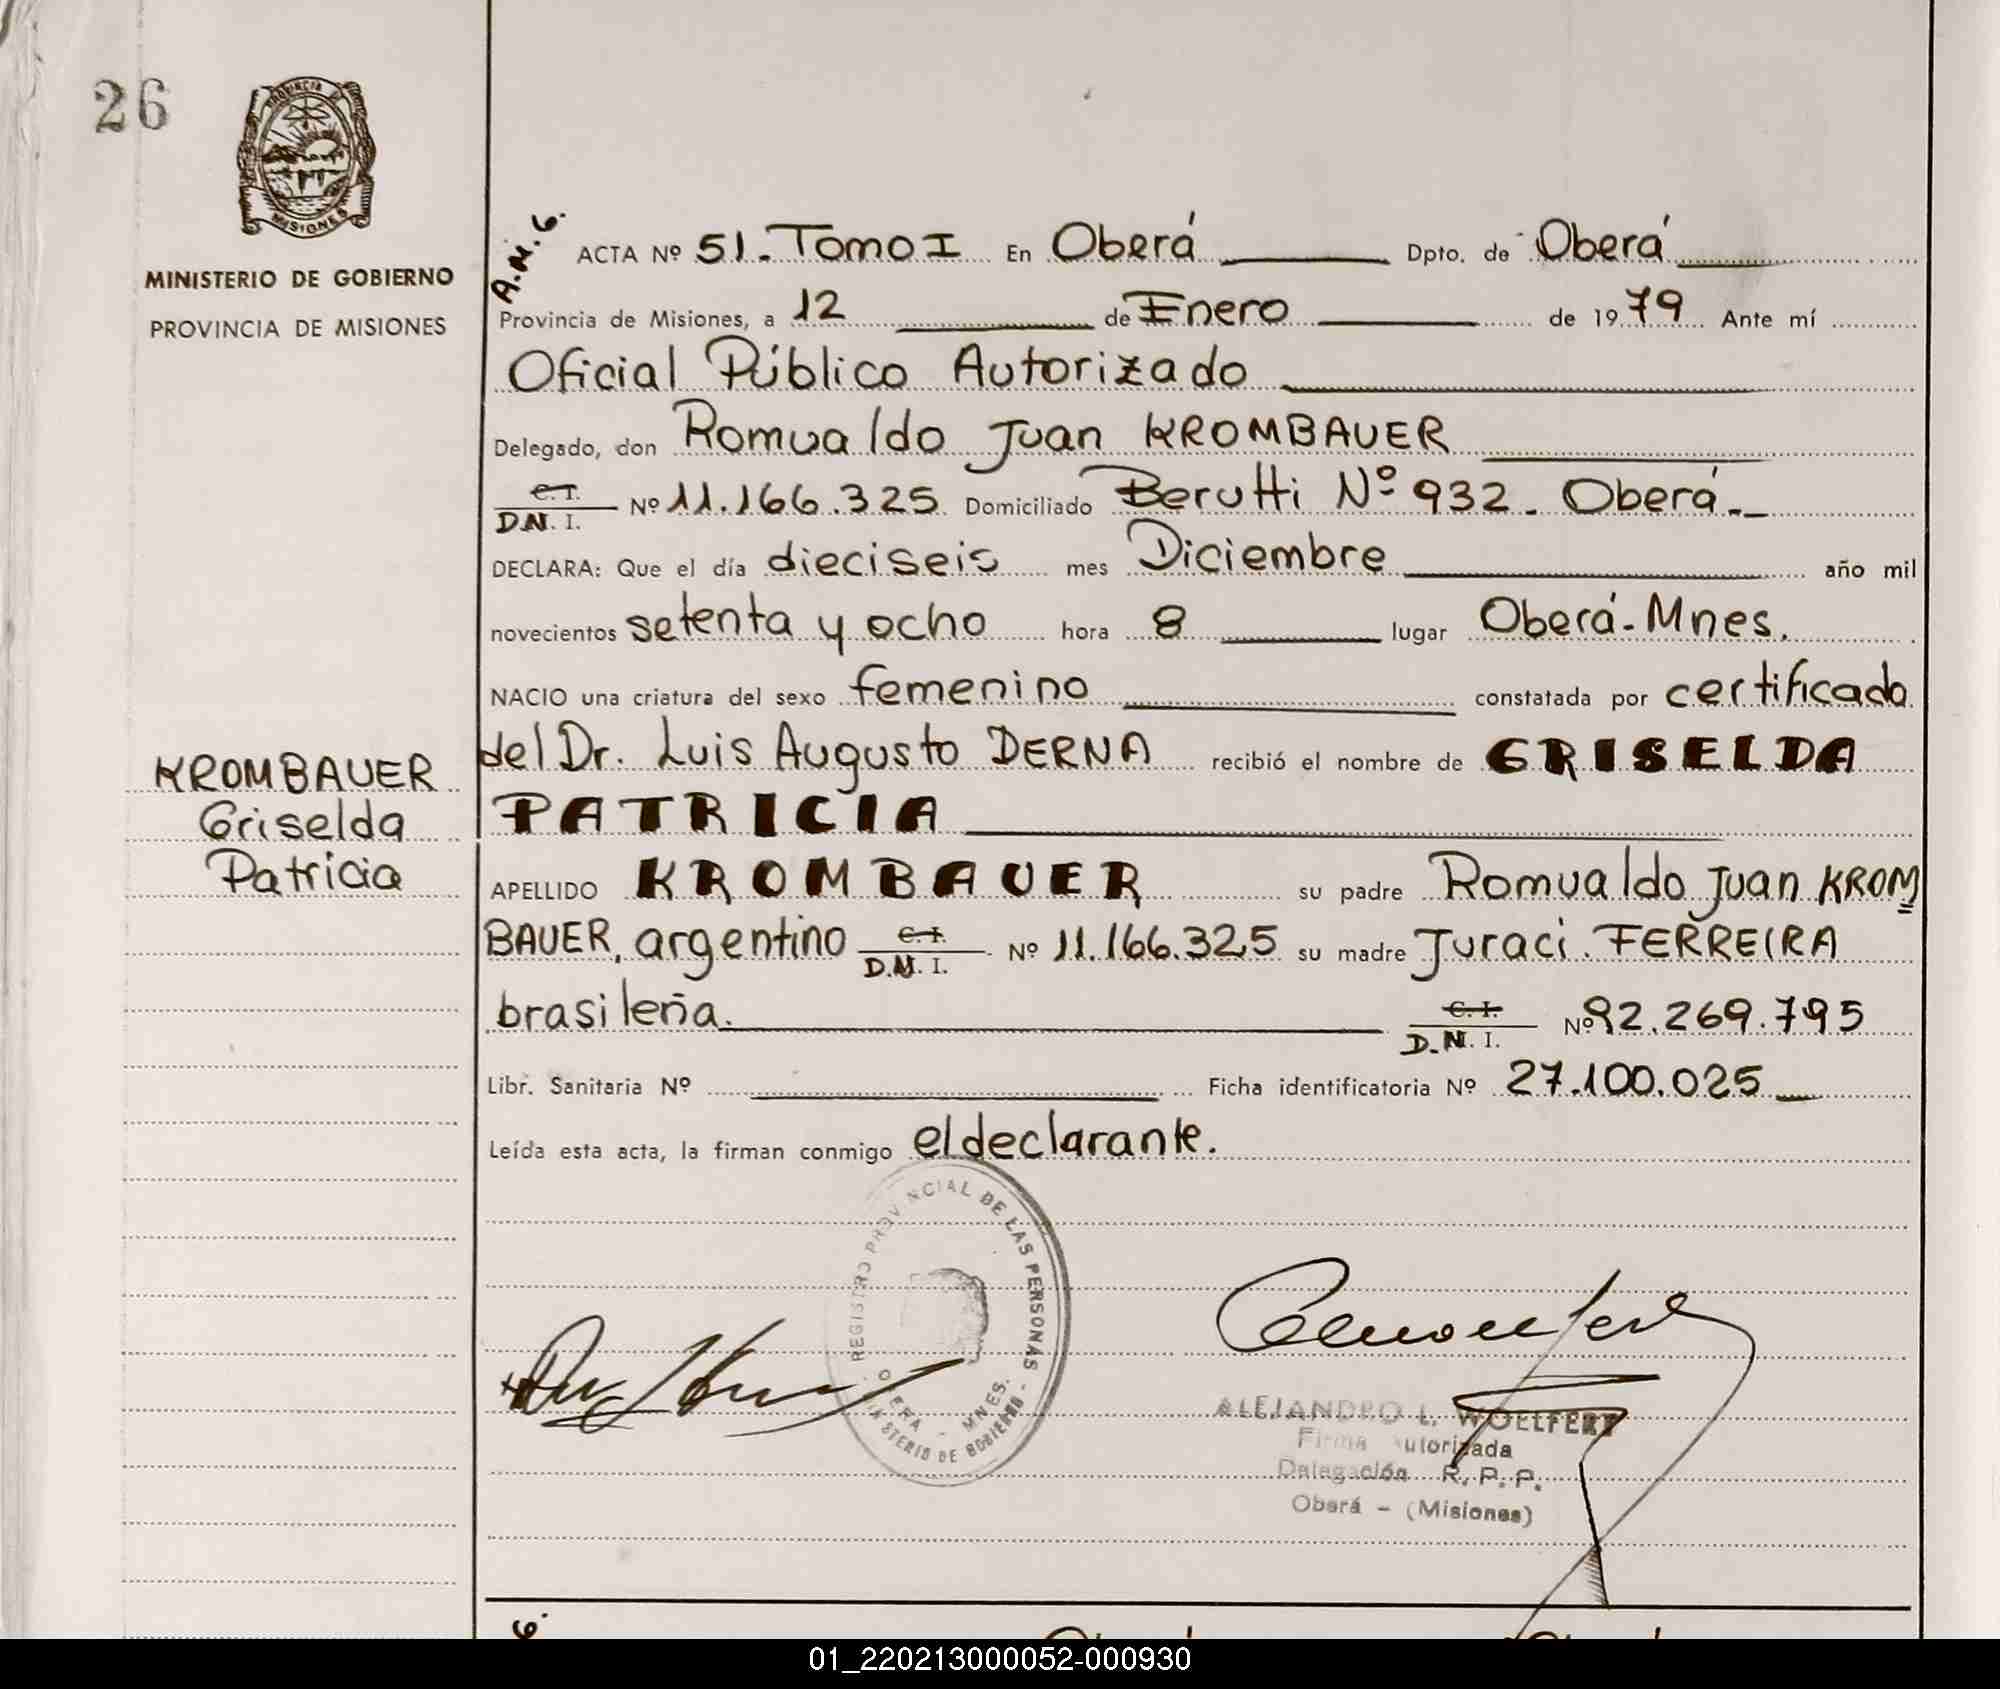 26
PROVINCIA DE
MISIONES
MINISTERIO DE GOBIERNO
PROVINCIA DE MISIONES
A.M.G.
ACTA Nº 51. Tomo I En Oberá Dpto. de Oberá
Provincia de Misiones, a 12 de Enero de 1979 Ante mí
Oficial Público Autorizado
Delegado, don Romualdo Juan KROMBAUER
C.I.
D.N.I. Nº 11.166.325 Domiciliado Berutti Nº 932. Oberá.
DECLARA: Que el día dieciseis mes Diciembre año mil
novecientos setenta y ocho hora 8 lugar Oberá-Mnes.
NACIO una criatura del sexo femenino constatada por certificado
del Dr. Luis Augusto DERNA recibió el nombre de GRISELDA
PATRICIA
KROMBAUER
Griselda
Patricia
APELLIDO KROMBAUER su padre Romualdo Juan KROM
BAUER, argentino C.I. D.N.I. Nº 11.166.325 su madre Juraci FERREIRA
brasileña. C.I. D.N.I. Nº 92.269.795
Libr. Sanitaria Nº Ficha identificatoria Nº 27.100.025
Leída esta acta, la firman conmigo el declarante.
REGISTRO PROVINCIAL DE LAS PERSONAS
OBERA - MNES.
MINISTERIO DE GOBIERNO
ALEJANDRO L. WOELFERT
Firma Autorizada
Delegación R.P.P.
Oberá - (Misiones)
01_220213000052-000930